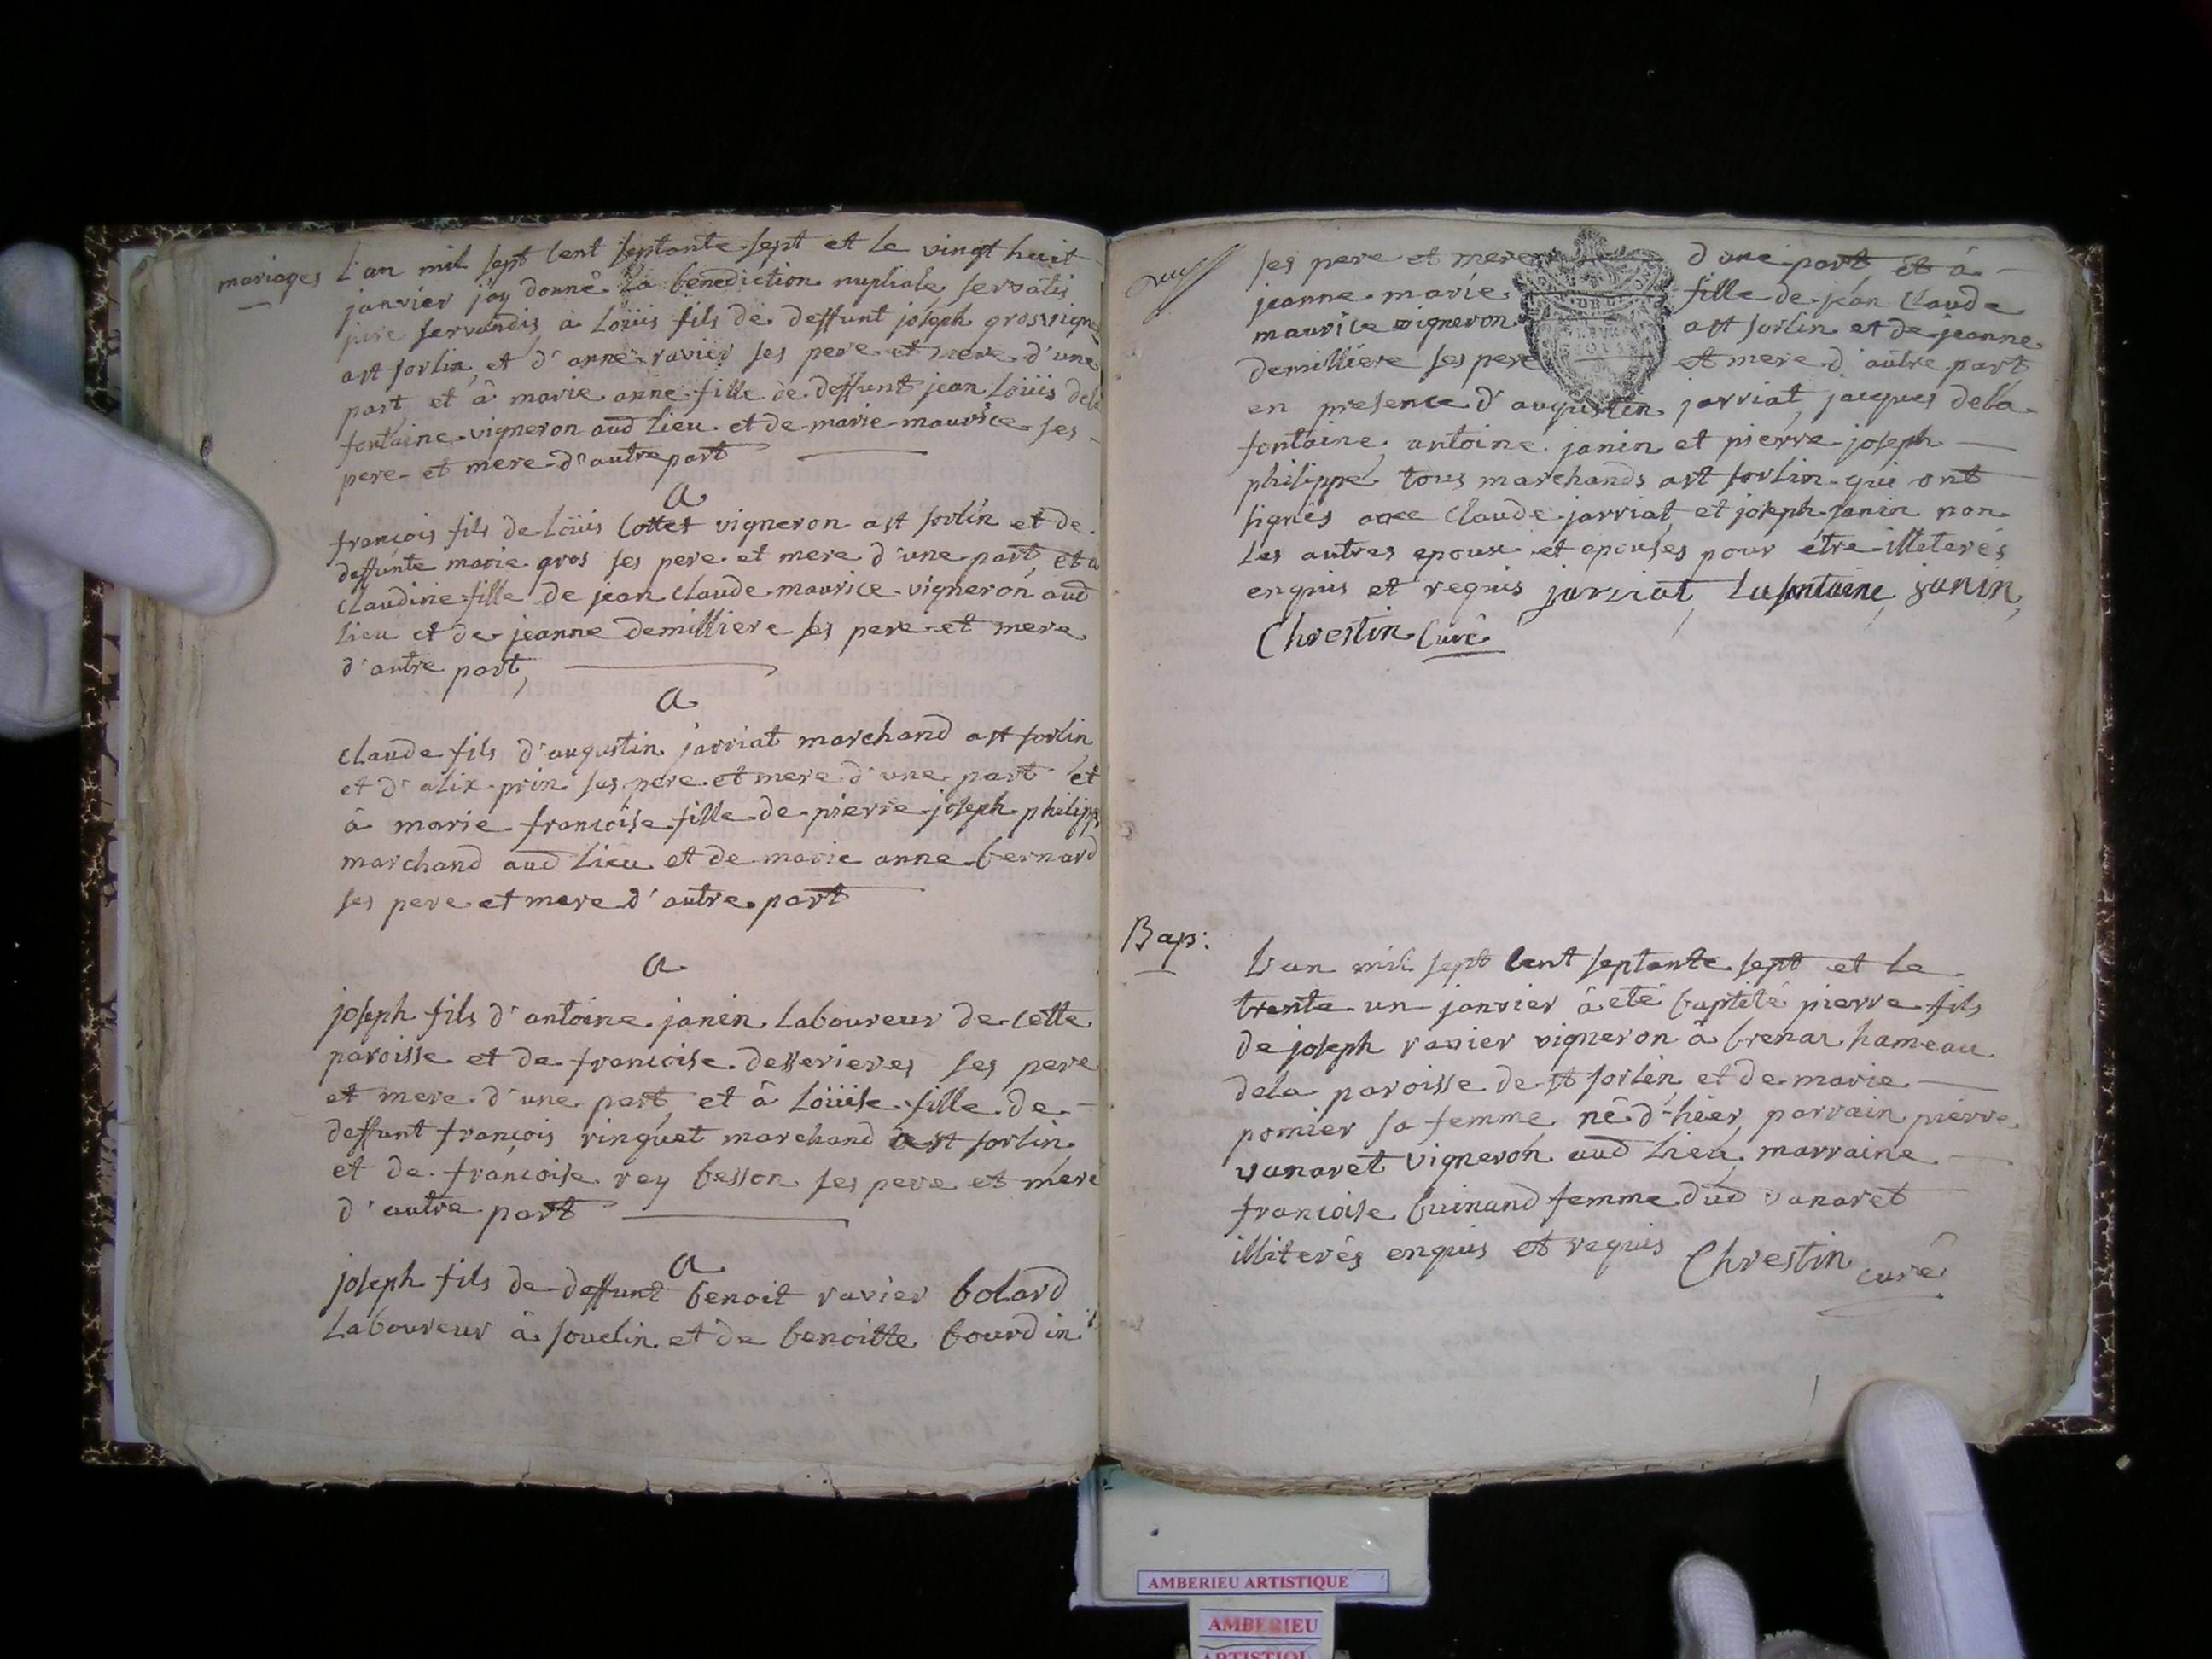 mariages
L'an mil sept cent septante sept et le vingt huit
janvier j'ay donné la benediction nuptiale servatis
jure servandis, à Loüis fils de deffunt joseph gros vigne
a st sorlin, et d'anne ravier ses pere et mere d'une
part, et à marie anne fille de deffunt jean Loüis dela
fontaine vigneron aud lieu et de marie maurice ses
pere et mere d'autre part
a
françois fils de Loüis Cottet vigneron a st sorlin et de
deffunte marie gros ses pere et mere d'une part, et a
Claudine fille de jean claude maurice vigneron aud
lieu et de jeanne demilliere ses pere et mere
d'autre part,
a
claude fils d'augustin jarriat marchand a st sorlin
et d'alix prin ses pere et mere d'une part et
à marie françoise fille de pierre joseph philippe
marchand aud lieu et de marie anne bernard
ses pere et mere d'autre part
a
joseph fils d'antoine janin Laboureur de cette
paroisse et de françoise desserieres ses pere
et mere d'une part, et à Loüise fille de
deffunt françois ringuet marchand a st sorlin
et de françoise rey besson ses pere et mere
d'autre part
a
joseph fils de deffunt benoit ravier bolard
Laboureur à souclin et de benoitte bourdin
ses pere et mere d'une part et à
jeanne marie fille de jean Claude
maurice vigneron a st sorlin et de jeanne
demilliere ses pere et mere d'autre part
en presence d'augustin jarriat, jacques dela
fontaine, antoine janin et pierre joseph
philippe tous marchands a st sorlin qui ont
signés avec Claude jarriat et joseph janin non
Les autres epoux et epouses pour être illiterés
enquis et requis jarriat, Lafontaine, janin,
Chrestin Curé
Bap:
L'an mil sept cent septante sept et le
trente un janvier à eté baptisé pierre fils
de joseph ravier vigneron à brenaz hameau
dela paroisse de st sorlin, et de marie
pomier sa femme, né d'hier, parrain pierre
vanaret vigneron aud lieu, marraine
françoise buinand femme dud vanaret
illiterés enquis et requis Chrestin curé
AMBERIEU ARTISTIQUE
AMBERIEU
ARTISTIQUE